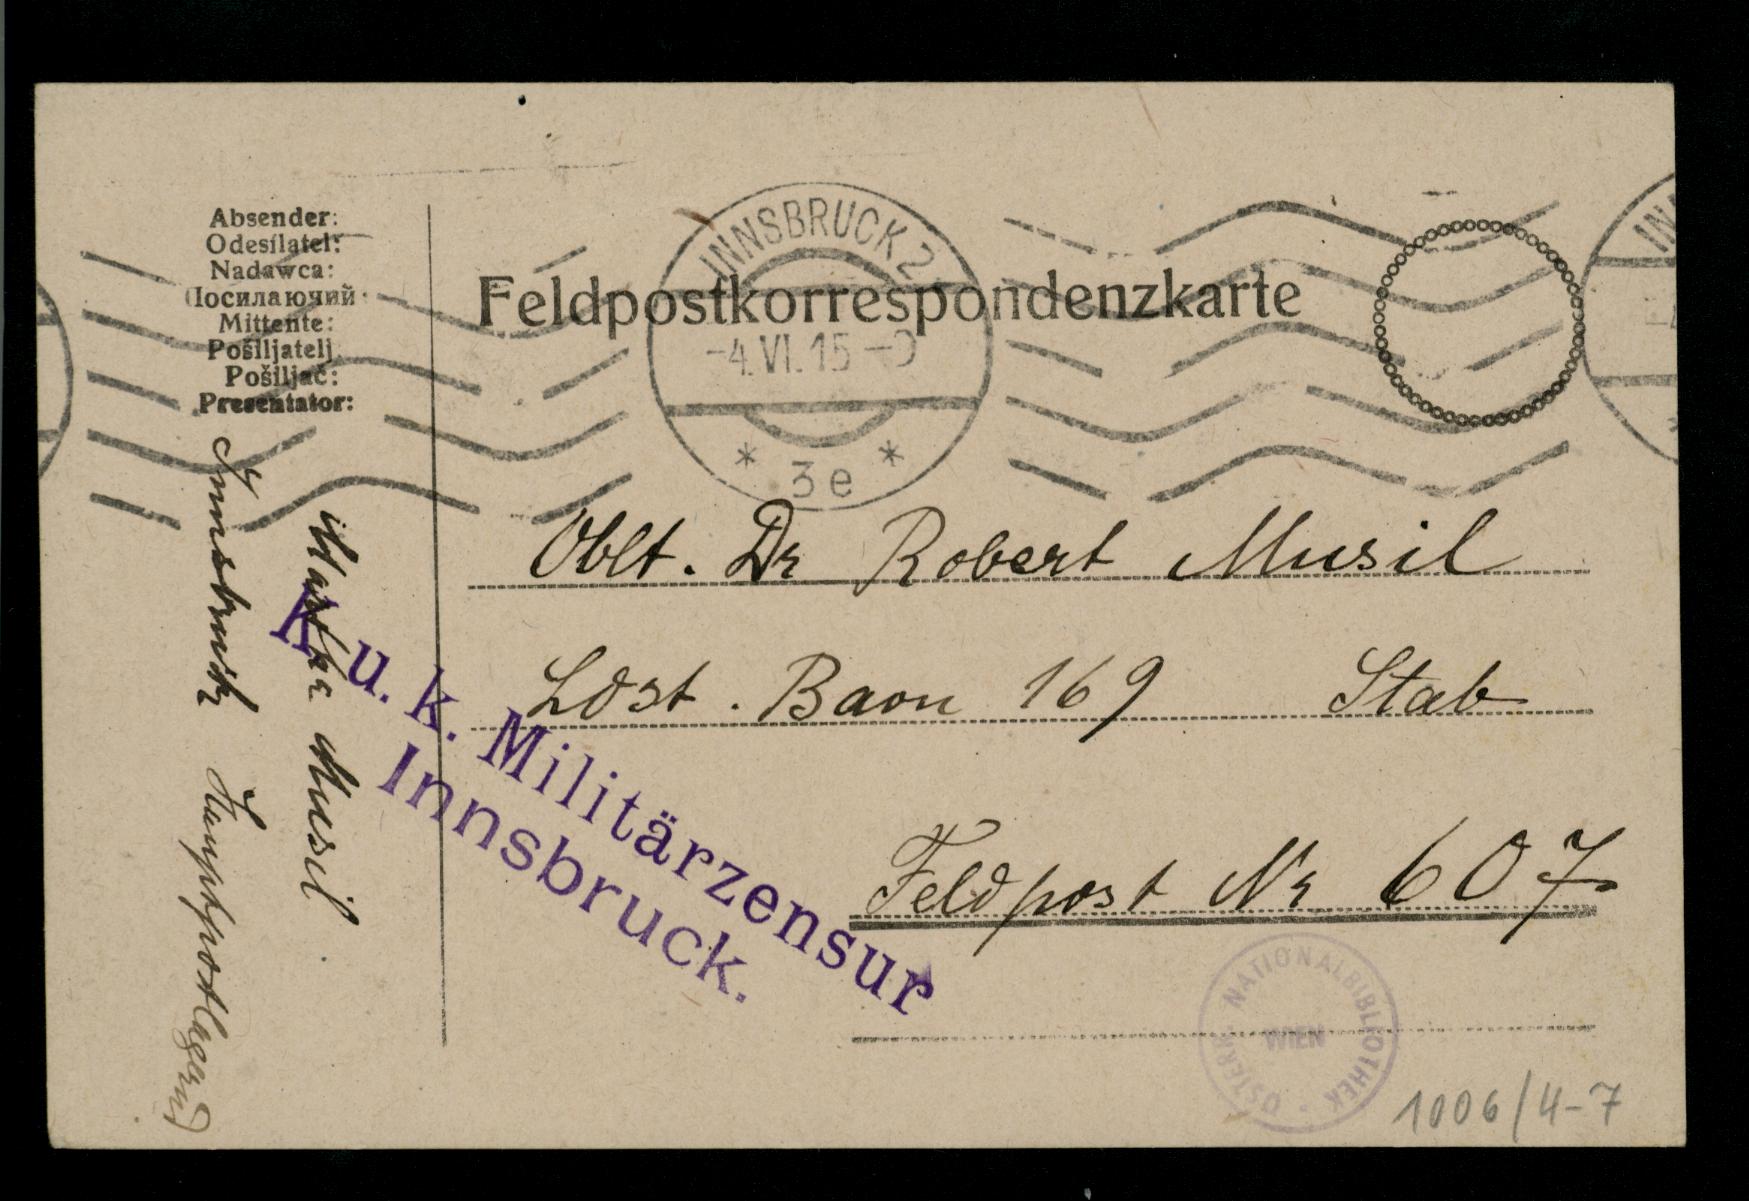 Absender:
Odesílatel:
Nadawca:
Посилаючий:
Mittente:
Pošiljatelj
Pošiljač:
Presentator:
Martha Musil
Innsbruck Hauptpostlagernd
Feldpostkorrespondenzkarte
INNSBRUCK 2
-4.VI.15
* 3e *
Oblt. Dr Robert Musil
Ldst. Baon 169 Stab
Feldpost Nr 607
K. u. k. Militärzensur
Innsbruck.
ÖSTERR. NATIONALBIBLIOTHEK
WIEN
1006/4-7